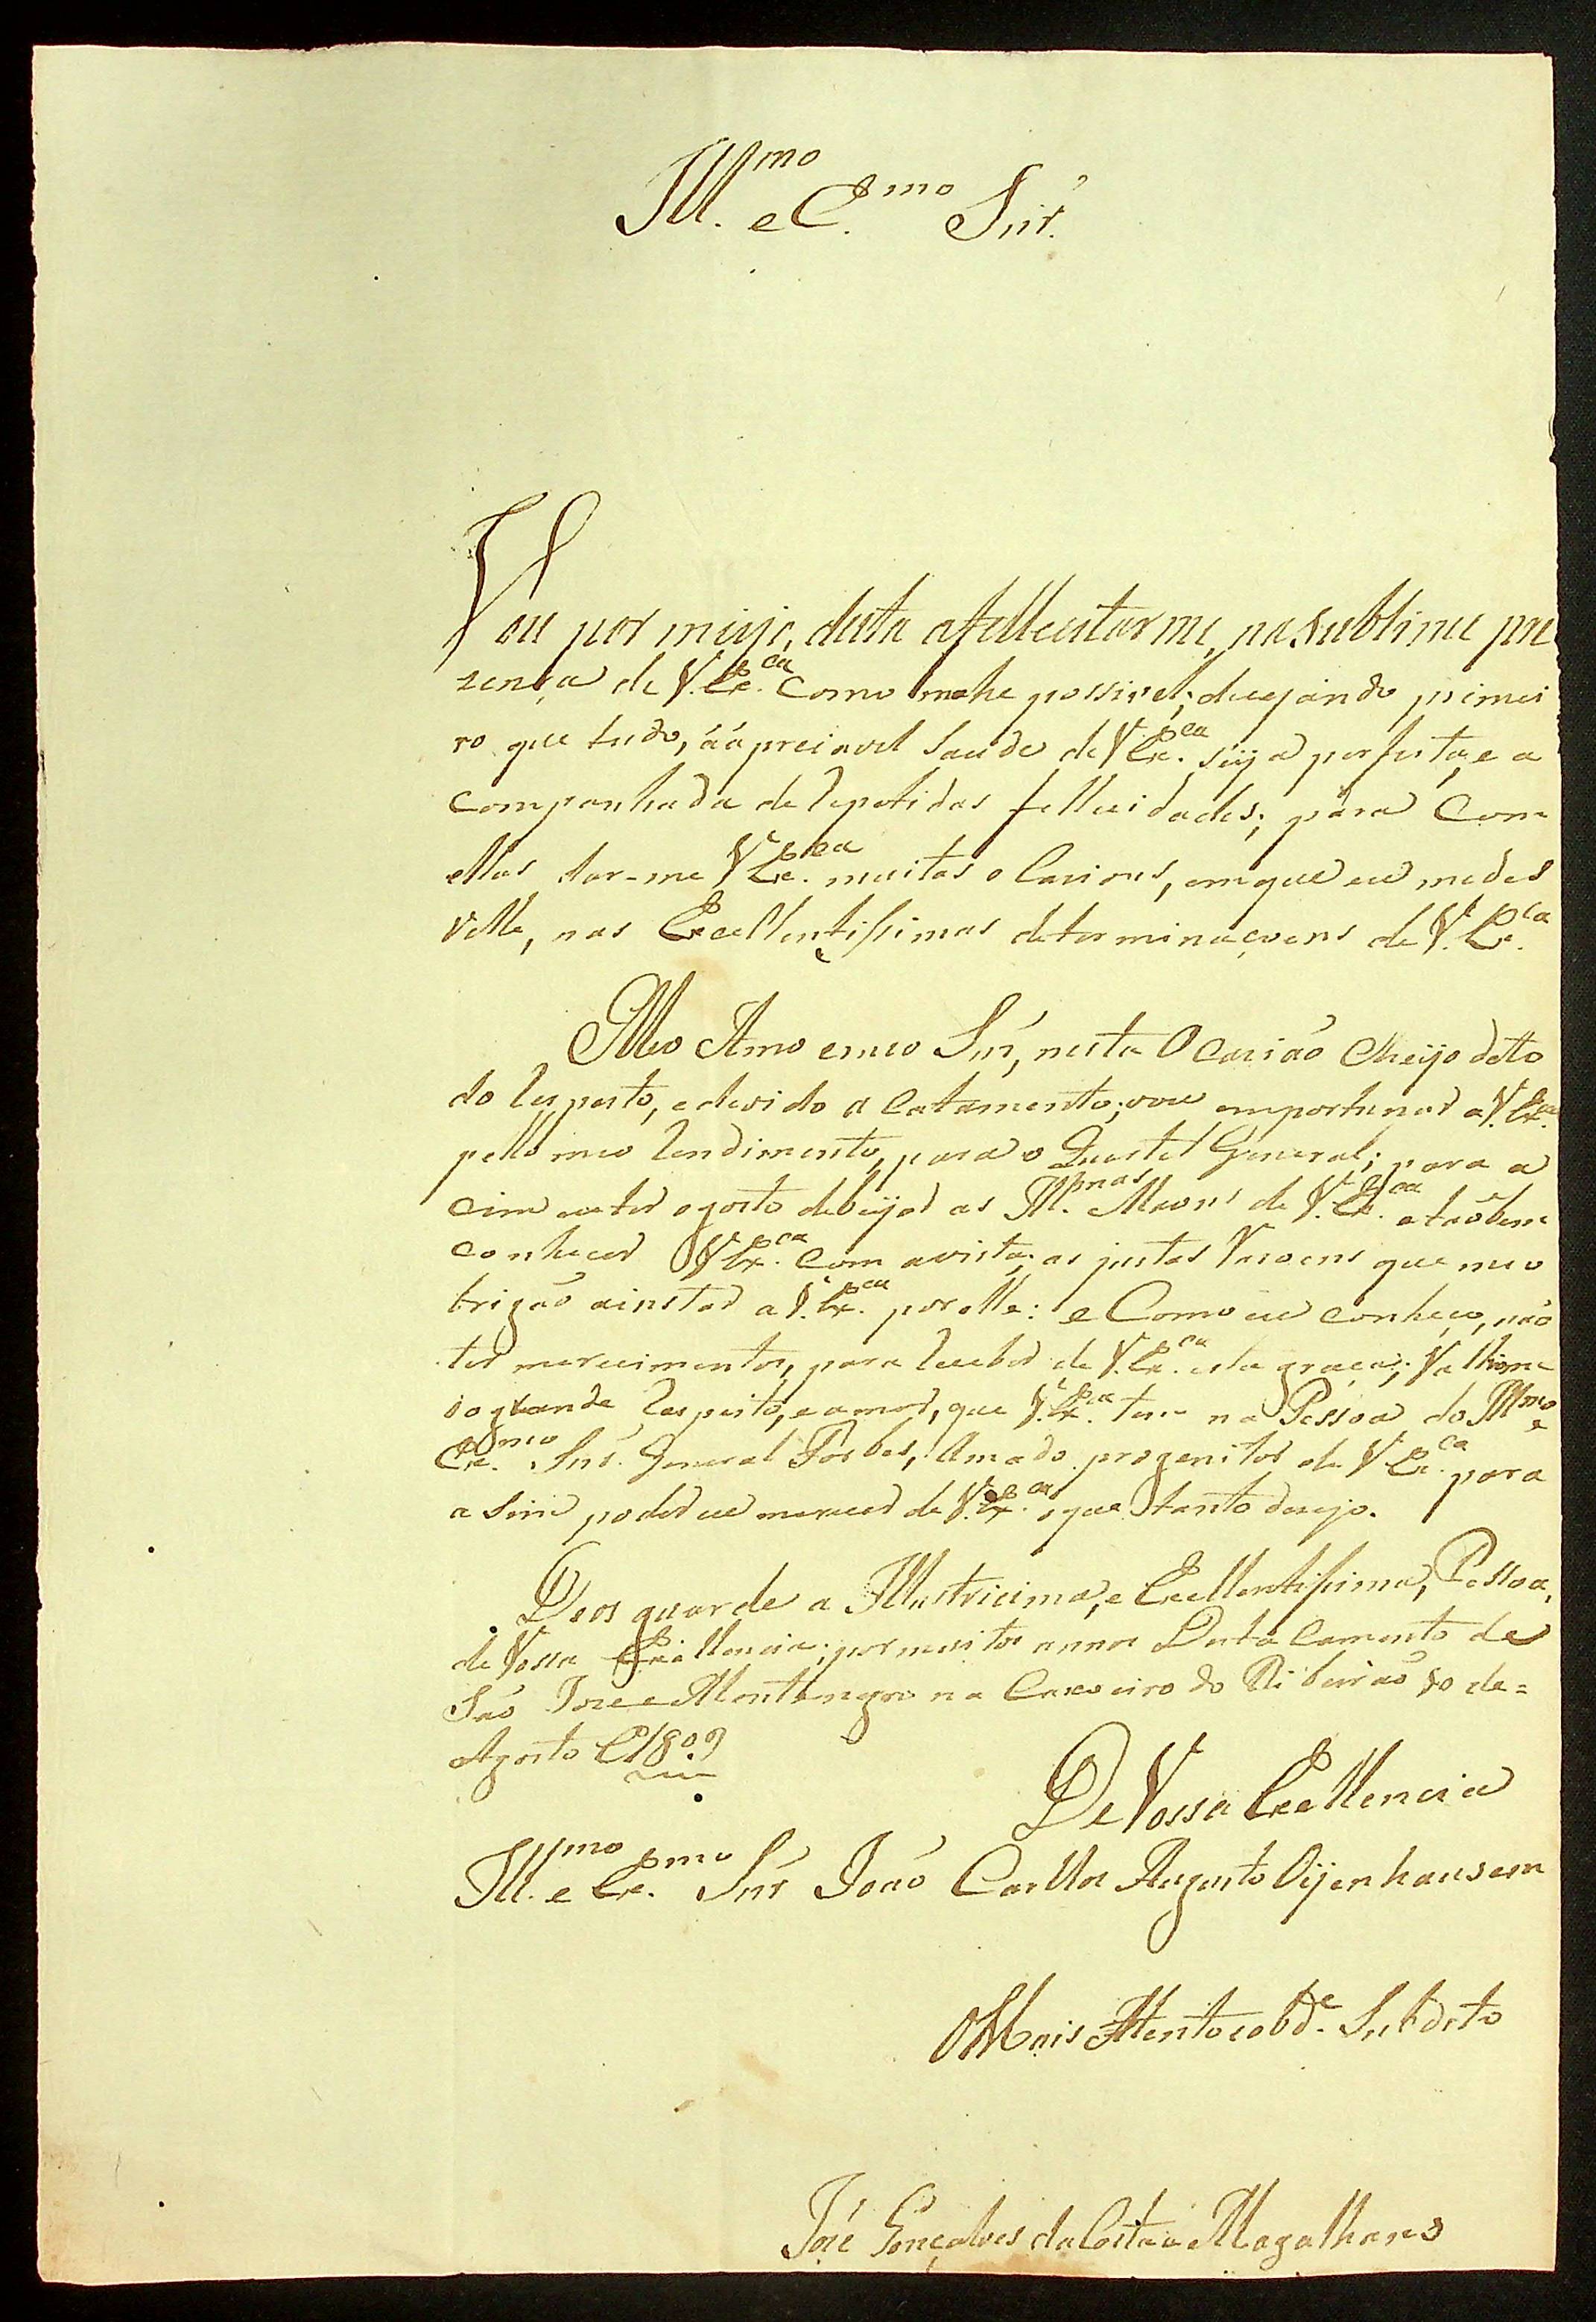 Ill.mo e E.mo Snr.
Vou por meijo, desta afelleсitarme, na sublime pre
zença de V. Ex.ca Como me he possivel; dezejando primei
ro que tudo, áápreciavel Saude de V Ex.ca seija perfeita, e a
companhada de Repetidas fellecidades; para Com
ellas dar-me V Ex.ca muitas oCasions, em que eu me des
velle, nas Excellentissimas determinaçoens de V. Ex.ca
Meo Amo e meo Snr, nesta OCasiaõ Cheijo de to
do Respeito, e devido aCatamento; vou emportunar a V. Ex.ca
pello meo Rendimento, para o Quartel General; para a
cim eu ter o gosto de beijar as Ill.mas Maons de V. Ex.ca e taõbem
conhecer V Ex.ca com a vista; as justas Razoens que meo
brigaõ a instar a V. Ex.ca por elle: e Como eu conheço, naõ
ter merecimentos, para Receber de V. Ex.ca esta graça; Valhame
o grande Respeito, e amor, que V. Ex.ca tem na Pessoa do Ill.mo e
Ex.mo Snr. General Forbes, Amado progenitor de V Ex.ca para
a Sim poder eu merecer de V. Ex.ca o que tanto dezejo.
Deos guarde a Illustricima, e Excellentissima, Pessoa,
de Vossa Excellencia; por muitos annos Destacamento de
Saõ Joze e Montenegro na Caxoeiro do Ribeiraõ 10 de=
Agosto de 1809
De Vossa Excellencia
Ill.mo e Ex.mo Snr Joaõ Carllos Augusto Oijenhausem
O Mais Atento e obd.e Subdito
José Gonçalves da Costa e Magalhaens